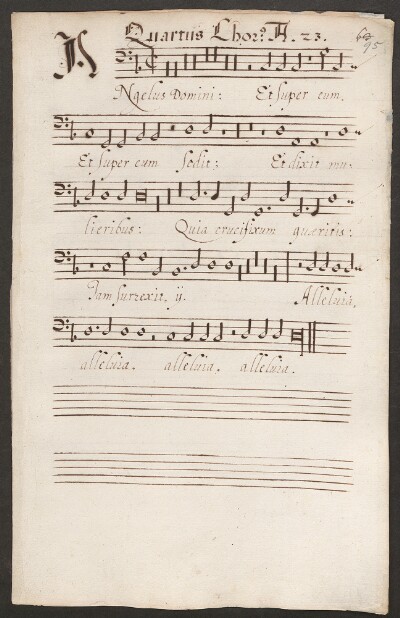 Quartus Chor⁹. A. 23.
95
A
Ngelus Domini: Et super eum.
Et super eum sedit: Et dixit mu-
lieribus: Quia crucifixum quæritis:
Jam surrexit. ij. Alleluia.
alleluia. alleluia. alleluia.